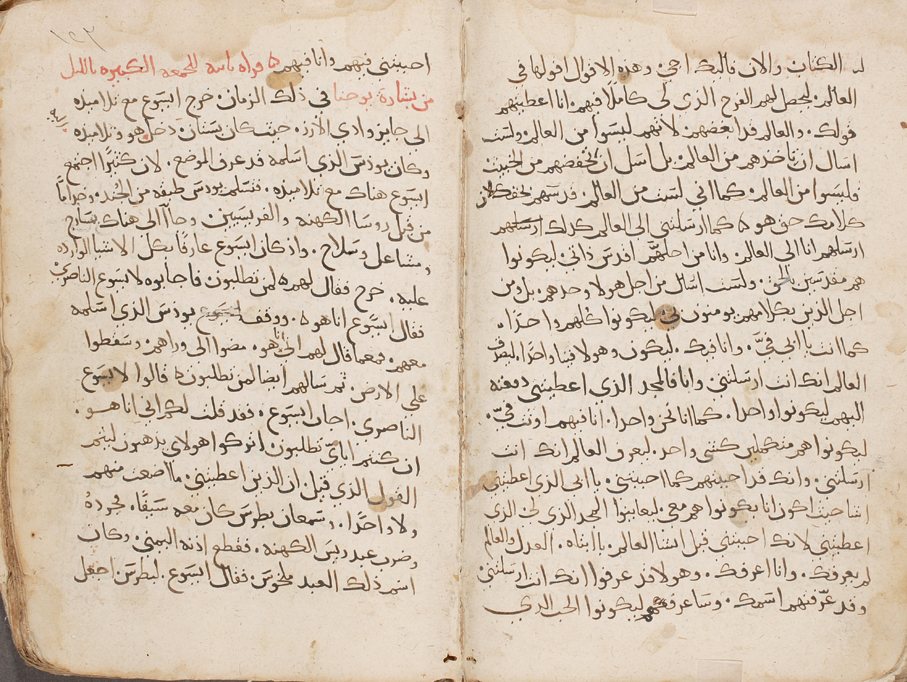 الكتاب والان فاليك اجي وهذه الاقوال اقولها في
العالم ليحصل لهم الفرح الذي لي كاملا فيهم انا اعطيتهم
قولك والعالم قد ابغضهم لانهم ليسوا من العالم ولست
اسال ان تاخذهم من العالم بل اسل ان تحفضهم من الخبيث
فليسوا من العالم كما اني لست من العالم قدسهم بحقك لان
كلامك حق هو كما ارسلتني الى العالم كذلك ارسلتهم
ارسلهم انا الى العالم وانا من اجلهم اقدس ذاتي ليكونوا
هم مقدسين بالحق ولست اسل من اجل هولا وحدهم بل ومن
اجل الذين بكلامهم يومنون بي ليكونوا كلهم واحدا
كما انت يا ابي فيّ وانا فيك ليكون وهولا فينا واحدا ليصدق
العالم انك انت ارسلتني وانا فالمجد الذي اعطيتني دفعته
اليهم ليكونوا واحدا كما انا نحن واحدا انا فيهم وانت فيّ
ليكونوا هم متكملين كشي واحد ليعرف العالم انك انت
ارسلتني وانك قد احببتهم كما احببتني يا ابي الذي اعطيتني
اشا حيث اكون انا يكونوا هم معي ليعاينوا المجد الذي لي الذي
اعطيتني لانك احببتني قبل انشا العالم يا ابتاه العدل والعالم
لم يعرفك وانا اعرفك وهولا قد عرفوا انك انت ارسلتني
وقد عرّفتهم اسمك وساعرفهم ليكونوا الحب الذي
١٤٣
احببتني فيهم وانا فيهم قراه ثانيه للجمعه الكبيره بالليل
من بشارة يوحنا في ذلك الزمان خرج ايسوع مع تلاميذه
الى جايز وادي الارز حيث كان بستان دخل هو وتلاميذه
وكان يوذس الذي اسلمه قد عرف الموضع لان كثيرًا اجتمع
ايسوع هناك مع تلاميذه فتسلم يوذس طيفه من الجند وخدامًا
من قبل روسا الكهنه والفريسيين وجا الى هناك بسرج
ومشاعل وسلاح واذ كان ايسوع عارفًا بكل الاشيا الوارده
عليه خرج فقال لهم لمن تطلبون فاجابوه لايسوع الناصري
فقال ايسوع انا هو ووقف يوذس الذي اسلمه
معهم فمعما قال لهم اني هو مضوا الى وراهم وسقطوا
على الارض ثم سالهم ايضا لمن تطلبون قالوا لايسوع
الناصري اجاب ايسوع فقد قلت لكم اني انا هو
ان كنتم ايايّ تطلبون اتركوا هولاي يذهبون ليتم
القول الذي قيل ان الذين اعطيتني ما اضعت منهم
ولا واحدًا وسمعان بطرس كان معه سيفًا فجرده
وضرب عبد ريس الكهنه فقطع اذنه اليمنى وكان
اسم ذلك العبد ملخوس فقال ايسوع لبطرس اجعل